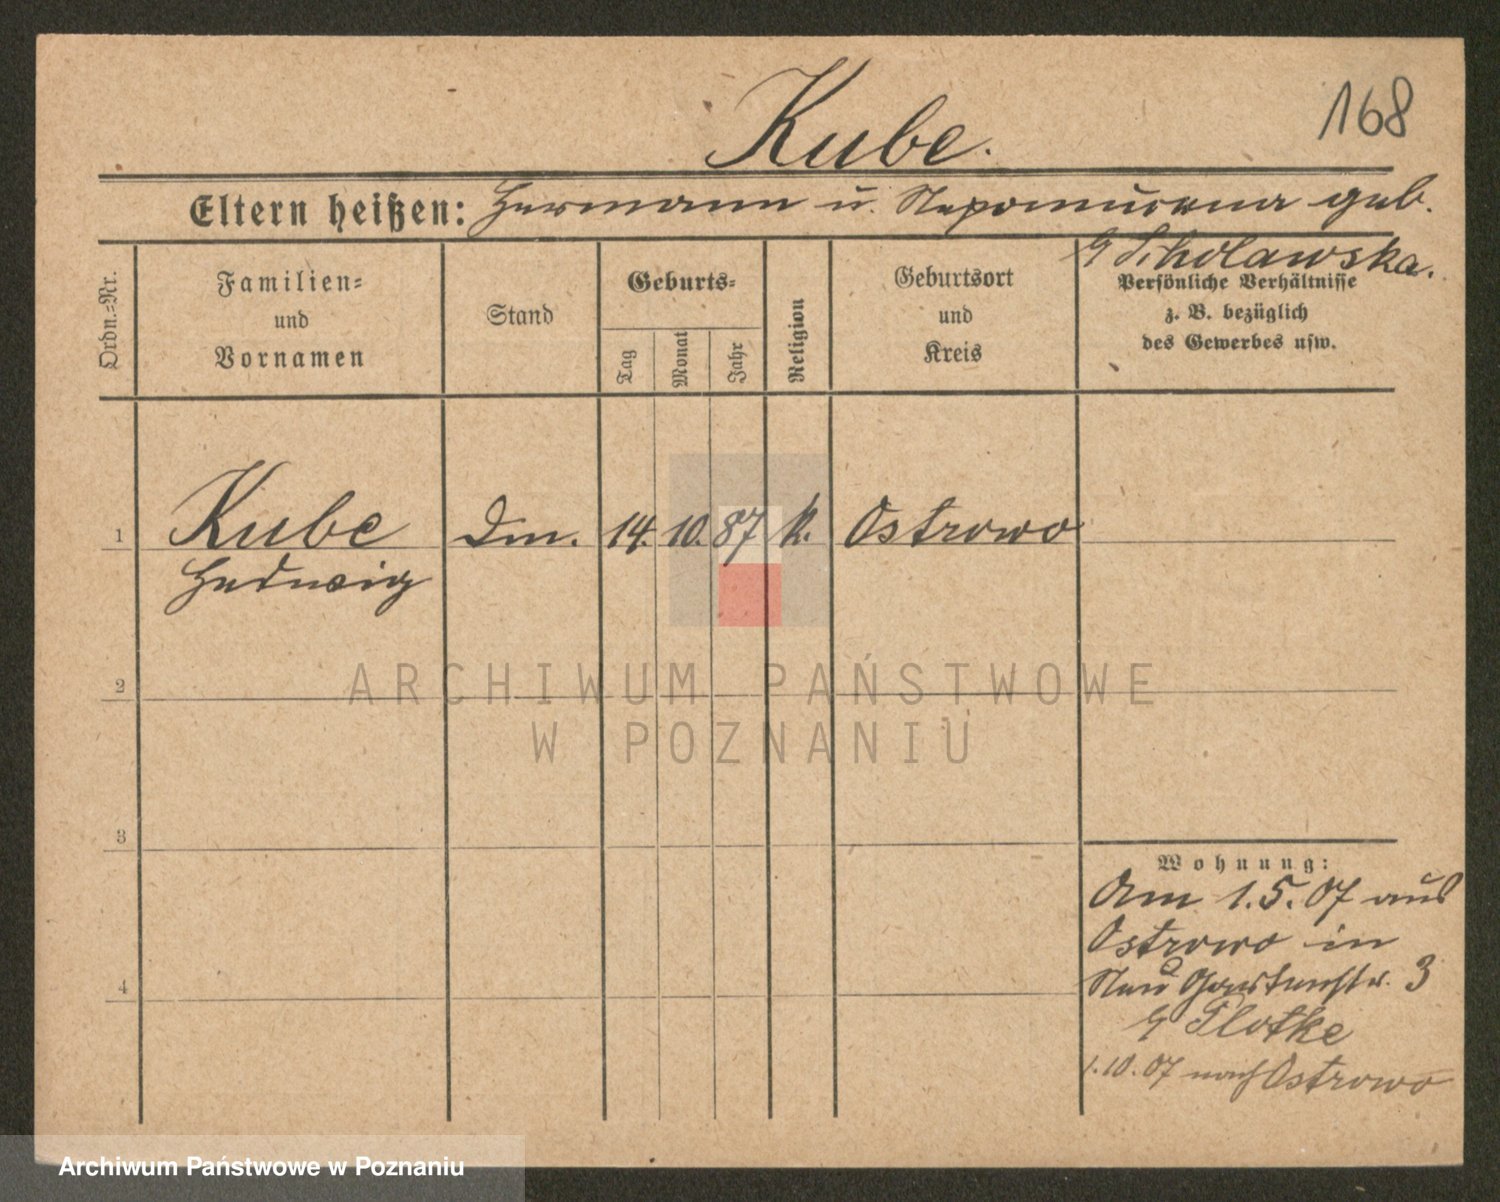 Kube.
168
Eltern heißen: Hermann u. Nepomucena geb.
Scholawska.
Ordn.-Nr.
Familien-
und
Vornamen
Stand
Geburts-
Tag
Monat
Jahr
Religion
Geburtsort
und
Kreis
Persönliche Verhältnisse
z. B. bezüglich
des Gewerbes usw.
1 Kube Dm. 14. 10. 87 k. Ostrowo
Hedwig
2
ARCHIWUM PAŃSTWOWE
W POZNANIU
3
Wohnung:
Am 1.5.07 aus
Ostrowo in
Neue Gartenstr. 3
4
b/ Plotke
1.10.07 nach Ostrowo
Archiwum Państwowe w Poznaniu